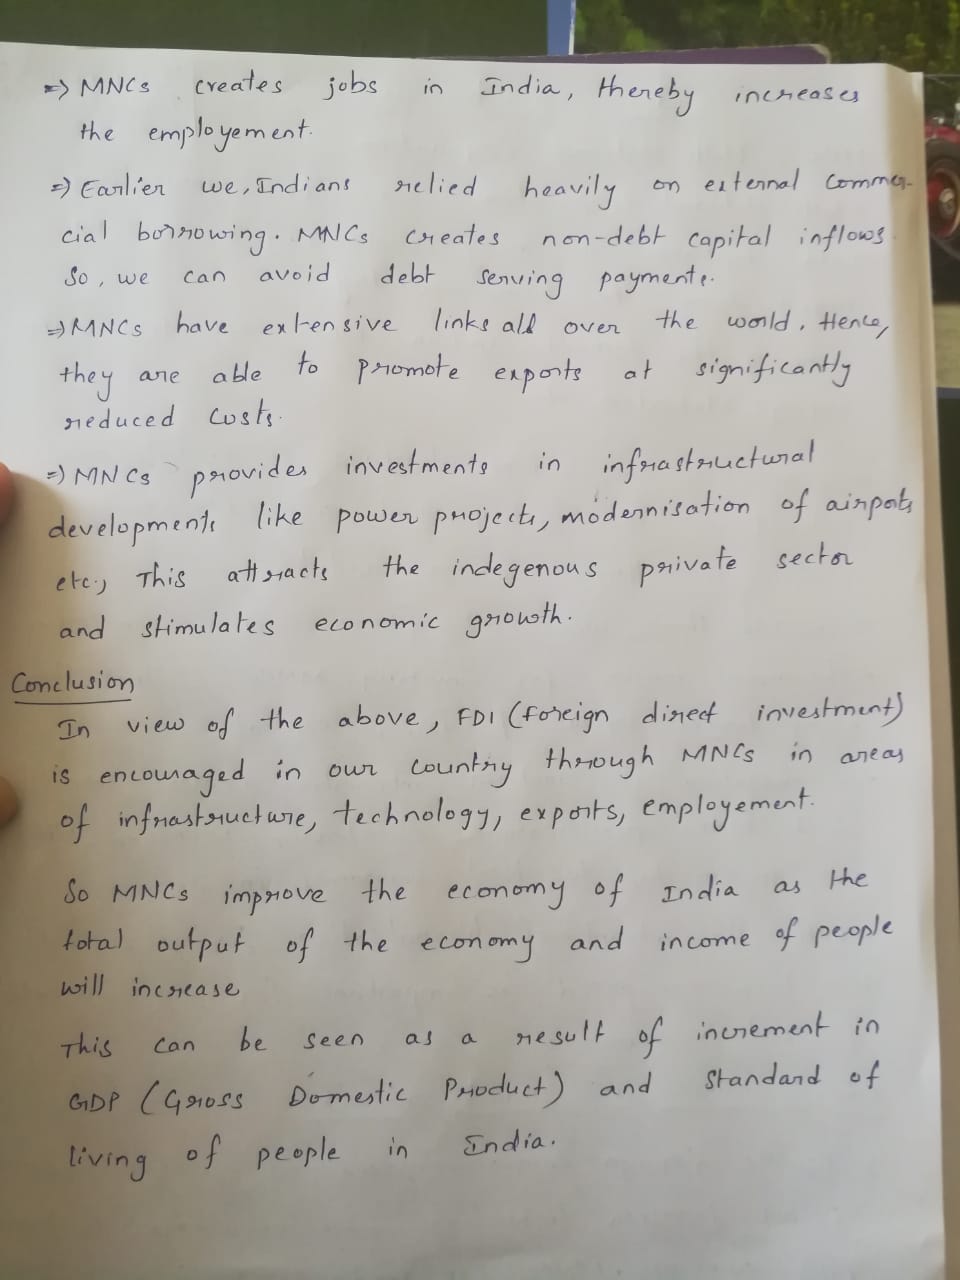 => MNCs creates jobs in India, thereby increases
the employement.
=> Earlier we, Indians relied heavily on external commer-
cial borrowing. MNCs creates non-debt capital inflows.
So, we can avoid debt serving payments.
=> MNCs have extensive links all over the world. Hence,
they are able to promote exports at significantly
reduced costs.
=> MNCs provides investments in infrastructural
developments like power projects, modernisation of airports
etc., This attracts the indegenous private sector
and stimulates economic growth.
Conclusion
In view of the above, FDI (foreign direct investment)
is encouraged in our country through MNCs in areas
of infrastructure, technology, exports, employement.
So MNCs improve the economy of India as the
total output of the economy and income of people
will increase
This can be seen as a result of increment in
GDP (Gross Domestic Product) and standard of
living of people in India.